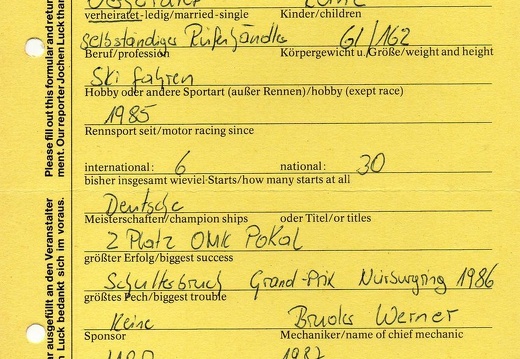 verheiratet-ledig/married-single Kinder/children
selbständiger Reifenhändler 61/162
Beruf/profession Körpergewicht u. Größe/weight and height
Ski fahren
Hobby oder andere Sportart (außer Rennen)/hobby (exept race)
1985
Rennsport seit/motor racing since
international: 6 national: 30
bisher insgesamt wieviel Starts/how many starts at all
Deutsche
Meisterschaften/champion ships oder Titel/or titles
2 Platz OMK Pokal
größter Erfolg/biggest success
Schulterbruch Grand-Prix Nürburgring 1986
größtes Pech/biggest trouble
Keine Bruder Werner
Sponsor Mechaniker/name of chief mechanic
1987
Please fill out this formular and return
ment. Our reporter Jochen Luck than
ar ausgefüllt an den Veranstalter
n Luck bedankt sich im voraus.